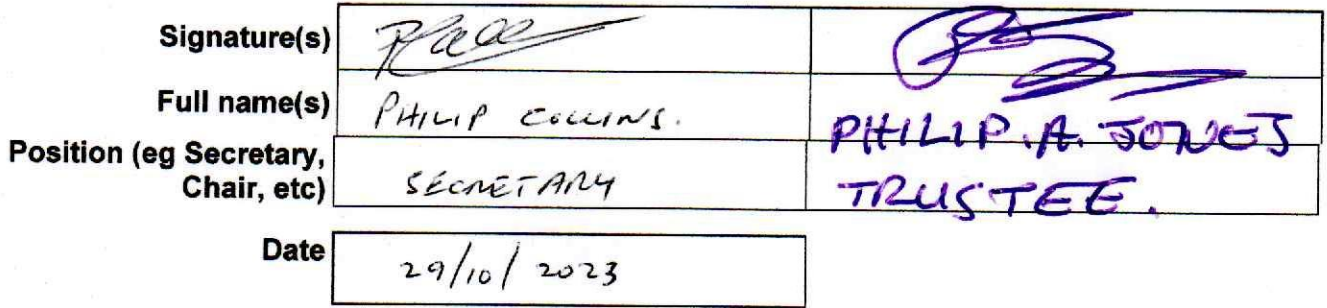 Signature(s)
Full name(s) PHILIP COLLINS. PHILIP.A. JONES
Position (eg Secretary,
Chair, etc) SECRETARY TRUSTEE.
Date 29/10/2023